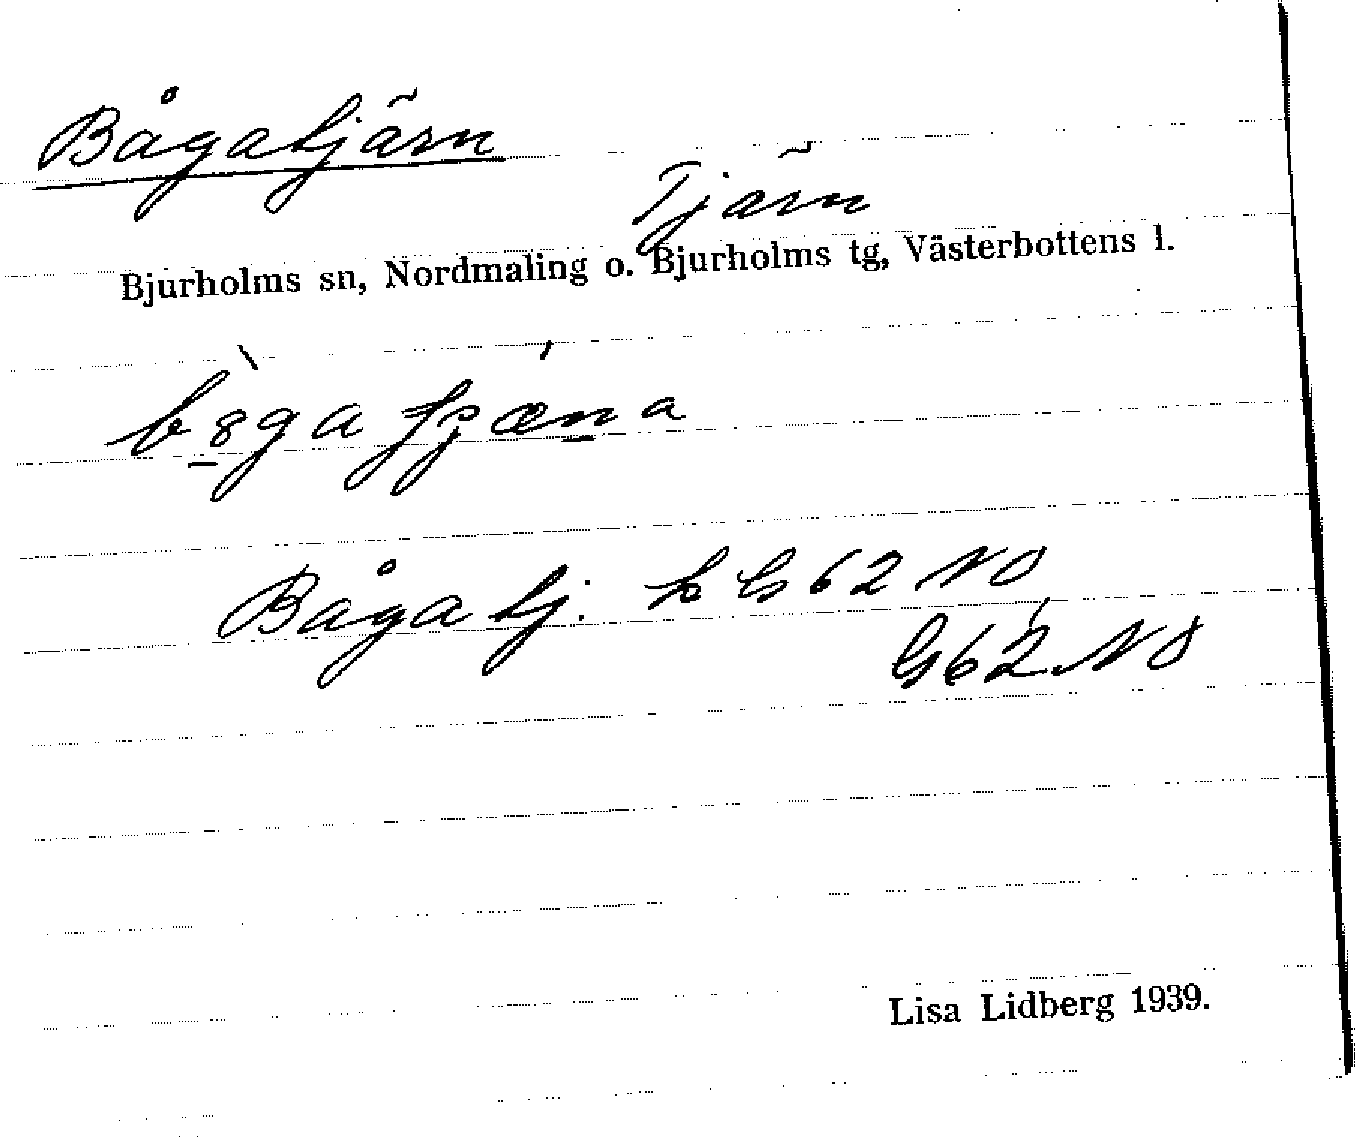 Bågatjärn
Tjärn
Bjurholms sn, Nordmaling o. Bjurholms tg, Västerbottens l.
Båga tj. G 62 NO,
G 62 NO
Lisa Lidberg 1939.